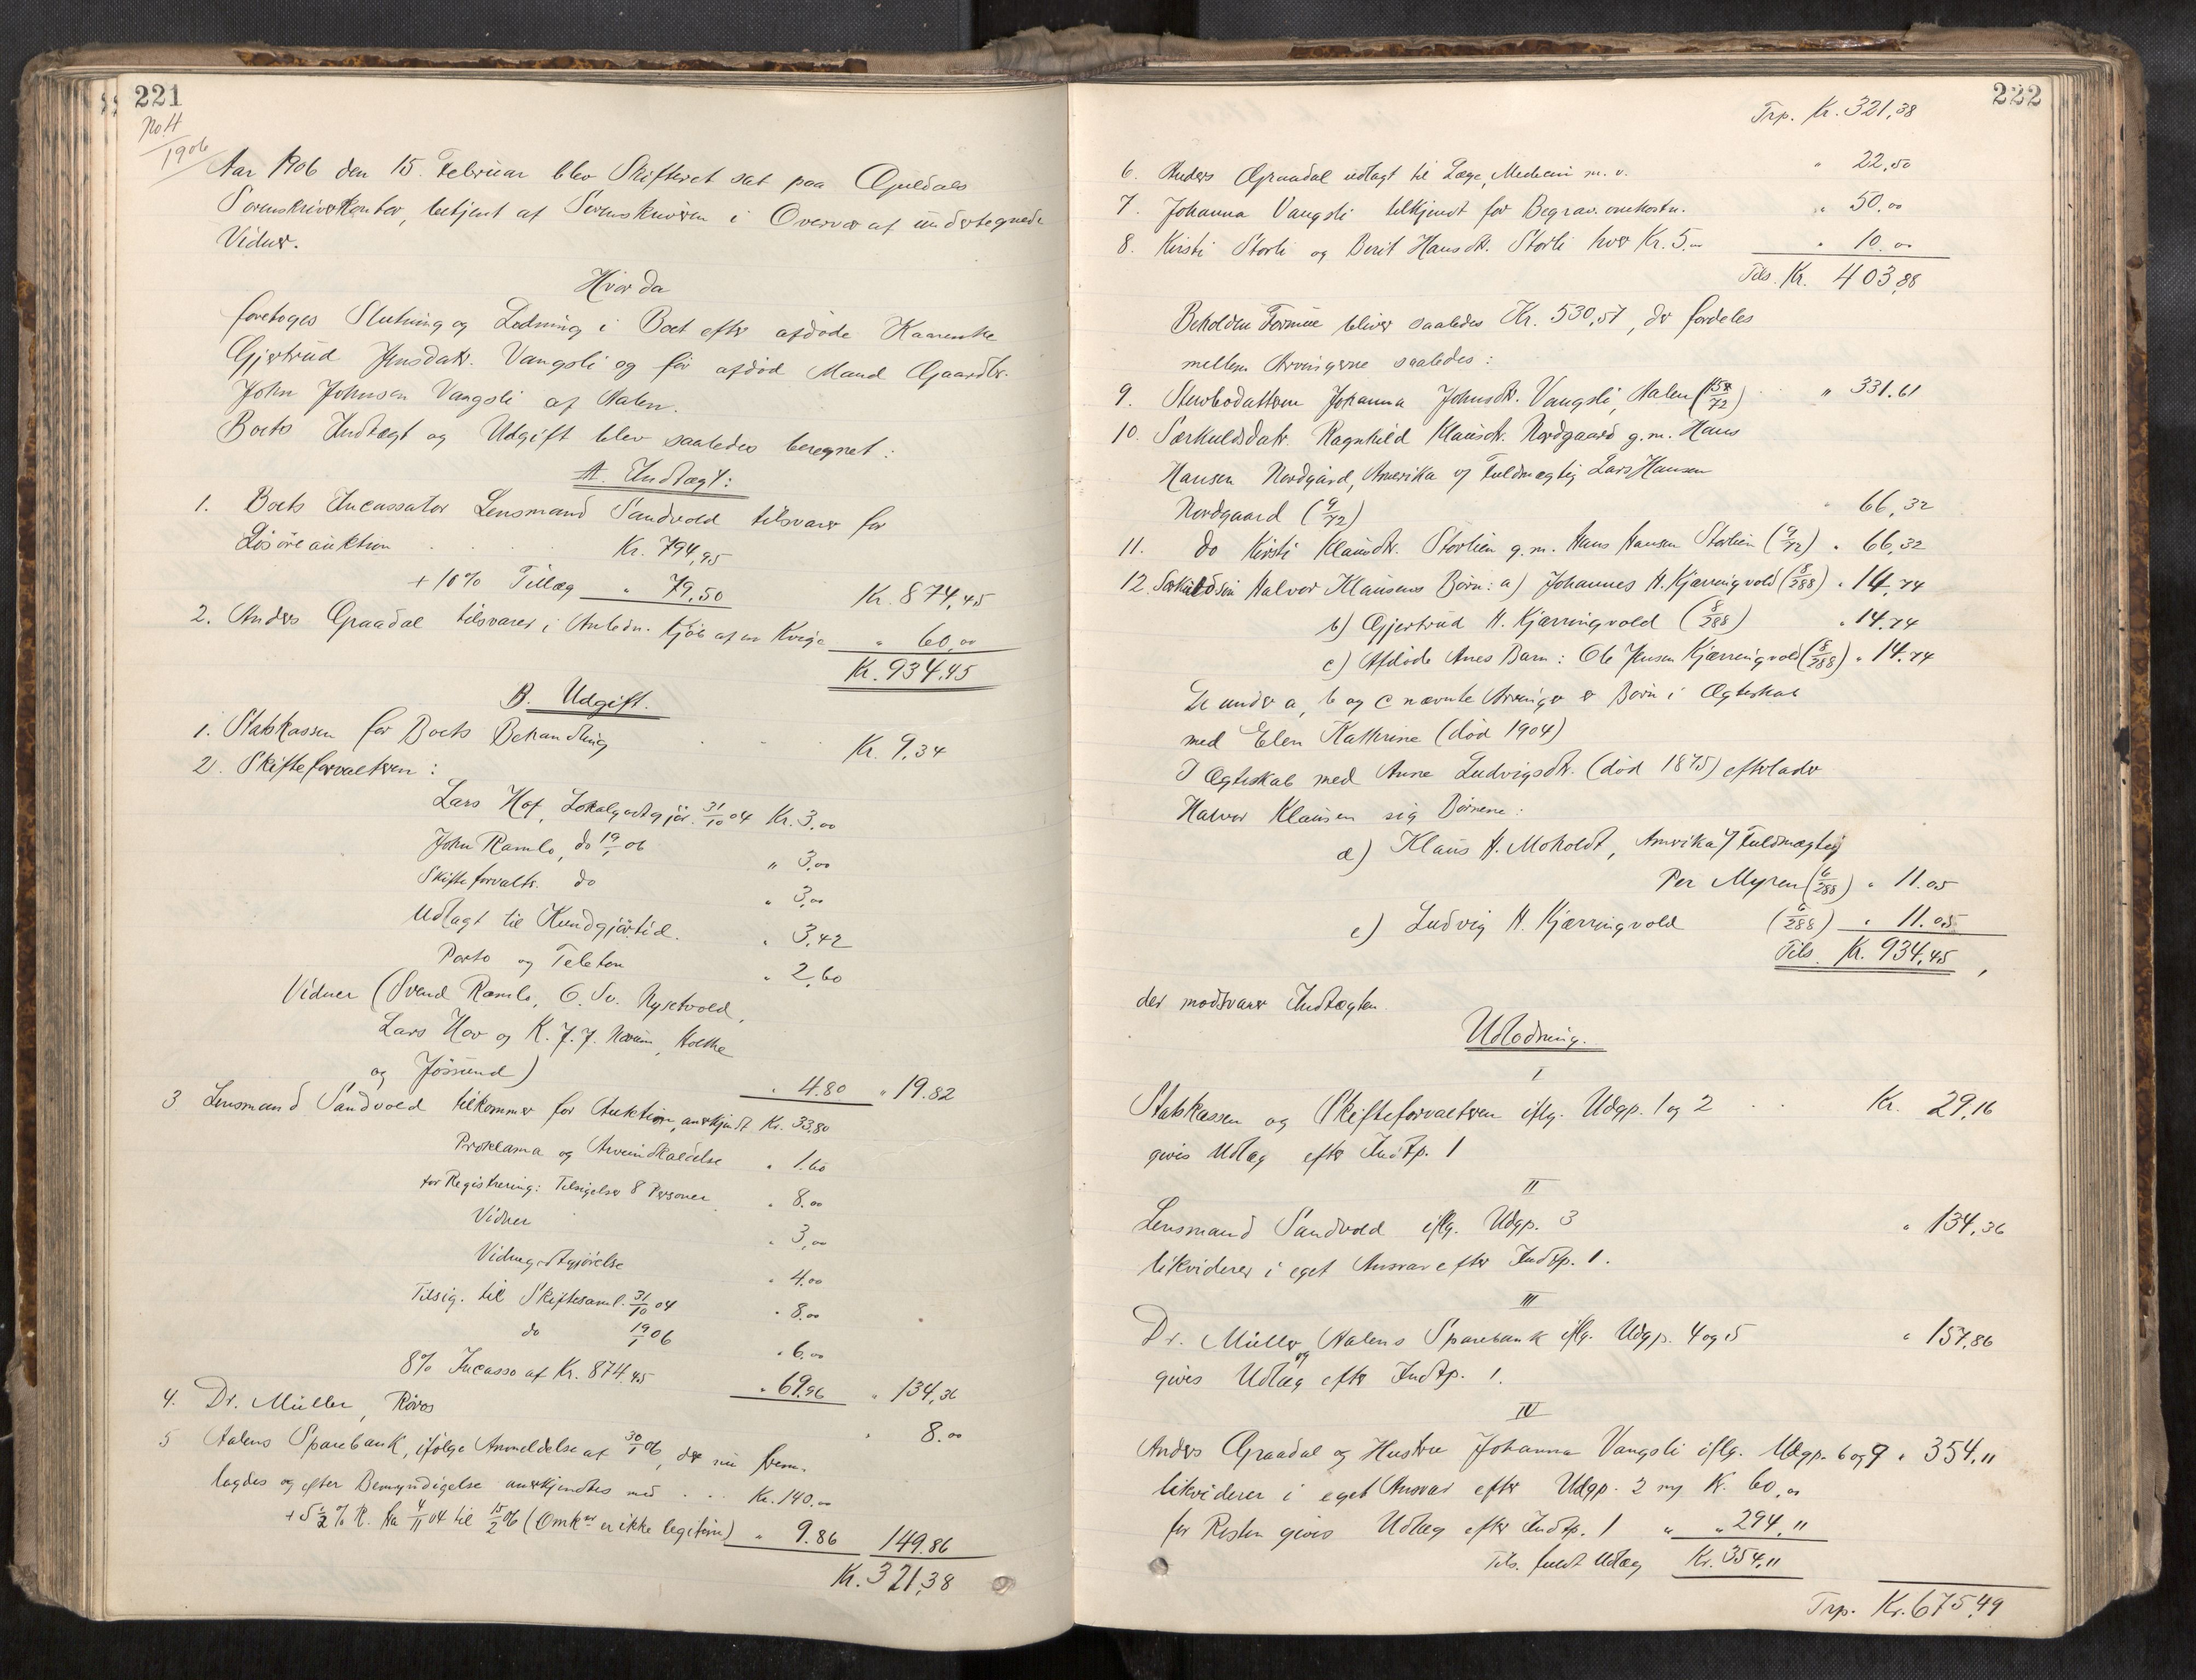 221
No. 4
1906
Aar 1906 den 15. Februar blev Skifteret sat paa Guldals
Sorenskriverkontor, betjent af Sorenskriveren i Overvær af undertegnede
Vidner.
Hvorda
foretoges Slutning og Lodning i Boet efter afdøde Karenke
Gjertrud Jensdatr. Vangsli og før afdød Mand Gaardbr.
John Johnsen Vangsli af Aalen.
Boets Indtægt og Udgift blev saaledes beregnet:
A. Indtægt:
1. Boets Incassator Lensmand Sandvold tilsvarer for
Løsøreauktion Kr. 794,95
+ 10% Tillæg " 79,50 Kr. 874,45
2. Anders Graadal tilsvarer i Anledn. Kjøb af en Kvige " 60,00
Kr. 934,45
B. Udgift.
1. Statskassen for Boets Behandling Kr. 9,34
2. Skifteforvalteren:
Lars Hof, Lokalgodtgjør. 31/10 04 Kr. 3,00
John Ramlo, do 19/1 06 " 3,00
Skifteforvaltr. do " 3,00
Udlagt til Kundgjør.tid. " 3,42
Porto og Telefon " 2,60
Vidner (Svend Ramlo, O. Sv. Nysetvold,
Lars Hov og K. J. J. Norum, Holthe
og Jøssund) " 4.80 " 19.82
3 Lensmand Sandvold tilkommer for Auktion, anerkjendt Kr. 33,80
Proklama og Arveindkaldelse " 1.60
for Registrering: Tilsigelser 8 Personer " 8,00
Vidner " 3,00
Vidnegodtgjørelse " 4.00
Tilsig. til Skiftesaml. 31/10 04 " 8.00
do 19/1 06 " 6.00
8% Incasso af Kr. 874,45 " 69.96 " 134,36
4. Dr. Müller, Røros " 8.00
5 Aalens Sparebank, ifølge Anmeldelse af 30/1 06, der nu frem-
lagdes og efter Bemyndigelse anerkjendtes med Kr. 140,00
+ 5½% R. fra 4/11 04 til 15/2 06 (Omk er ikke legitim) " 9.86 149.86
Kr. 321,38
222
Trp. Kr. 321,38
6. Anders Graadal udlagt til Læge, Medicin m. v. " 22,50
7. Johanna Vangsli tilkjendt for Begrav. omkostn. " 50,00
8. Kirsti Storli og Berit Hansdtr. Storli hver Kr. 5.00 " 10.00
Tils. Kr. 403,88
Beholden Formue bliver saaledes Kr. 530,57, der fordeles
mellem Arvingerne saaledes:
9. Stervbodatteren Johanna Johnsdtr. Vangsli, Aalen (45/72) " 331.61
10. Særkuldsdatr. Ragnhild Klausdtr. Nordgaard g. m. Hans
Hansen Nordgård, Amerika v/ Fuldmægtig Lars Hansen
Nordgaard (9/72) " 66,32
11. do Kirsti Klausdtr. Storlien g. m. Hans Hansen Storlien (9/72) " 66,32
12. Særkuldssøn Halvor Klausens Børn: a) Johannes H. Kjærringvold (8/288) " 14,74
b) Gjertrud H. Kjærringvold (8/288) " 14,74
c) Afdøde Anes Barn: Ole Jensen Kjærringvold (8/288) " 14,74
De under a, b og c nævnte Arvinger er Børn i Ægteskab
med Elen Kathrine (død 1904)
I Ægteskab med Anne Ludvigsdtr. (død 1875) efterlader
Halvor Klausen sig Børnene:
d) Klaus H. Moholdt, Amerika v/ Fuldmægtig
Per Myren (6/288) " 11.05
e) Ludvig H. Kjærringvold (6/288) " 11.05
Tils. Kr. 934,45,
der modsvarer Indtægten.
Udlodning.
I
Statskassen og Skifteforvalteren iflg. Udgp. 1 og 2 Kr. 29,16
givis Udlæg efter Indtp. 1
II
Lensmand Sandvold iflg. Udgp. 3 " 134,36
likviderer i eget Ansvar efter Indtp. 1.
III
Dr. Müller og Aalens Sparebank iflg. Udgp. 4 og 5 " 157,86
givis Udlæg efter Indtp. 1.
IV
Anders Graadal og Hustru Johanna Vangsli iflg. Udgp. 6 og 9 " 354,11
likviderer i eget Ansvar efter Udgp. 2 Kr. 60,00
for Resten givis Udlæg efter Indtp. 1 " " 294,11
Tils. fuldt Udlæg Kr. 354,11
Trp. Kr. 675,49